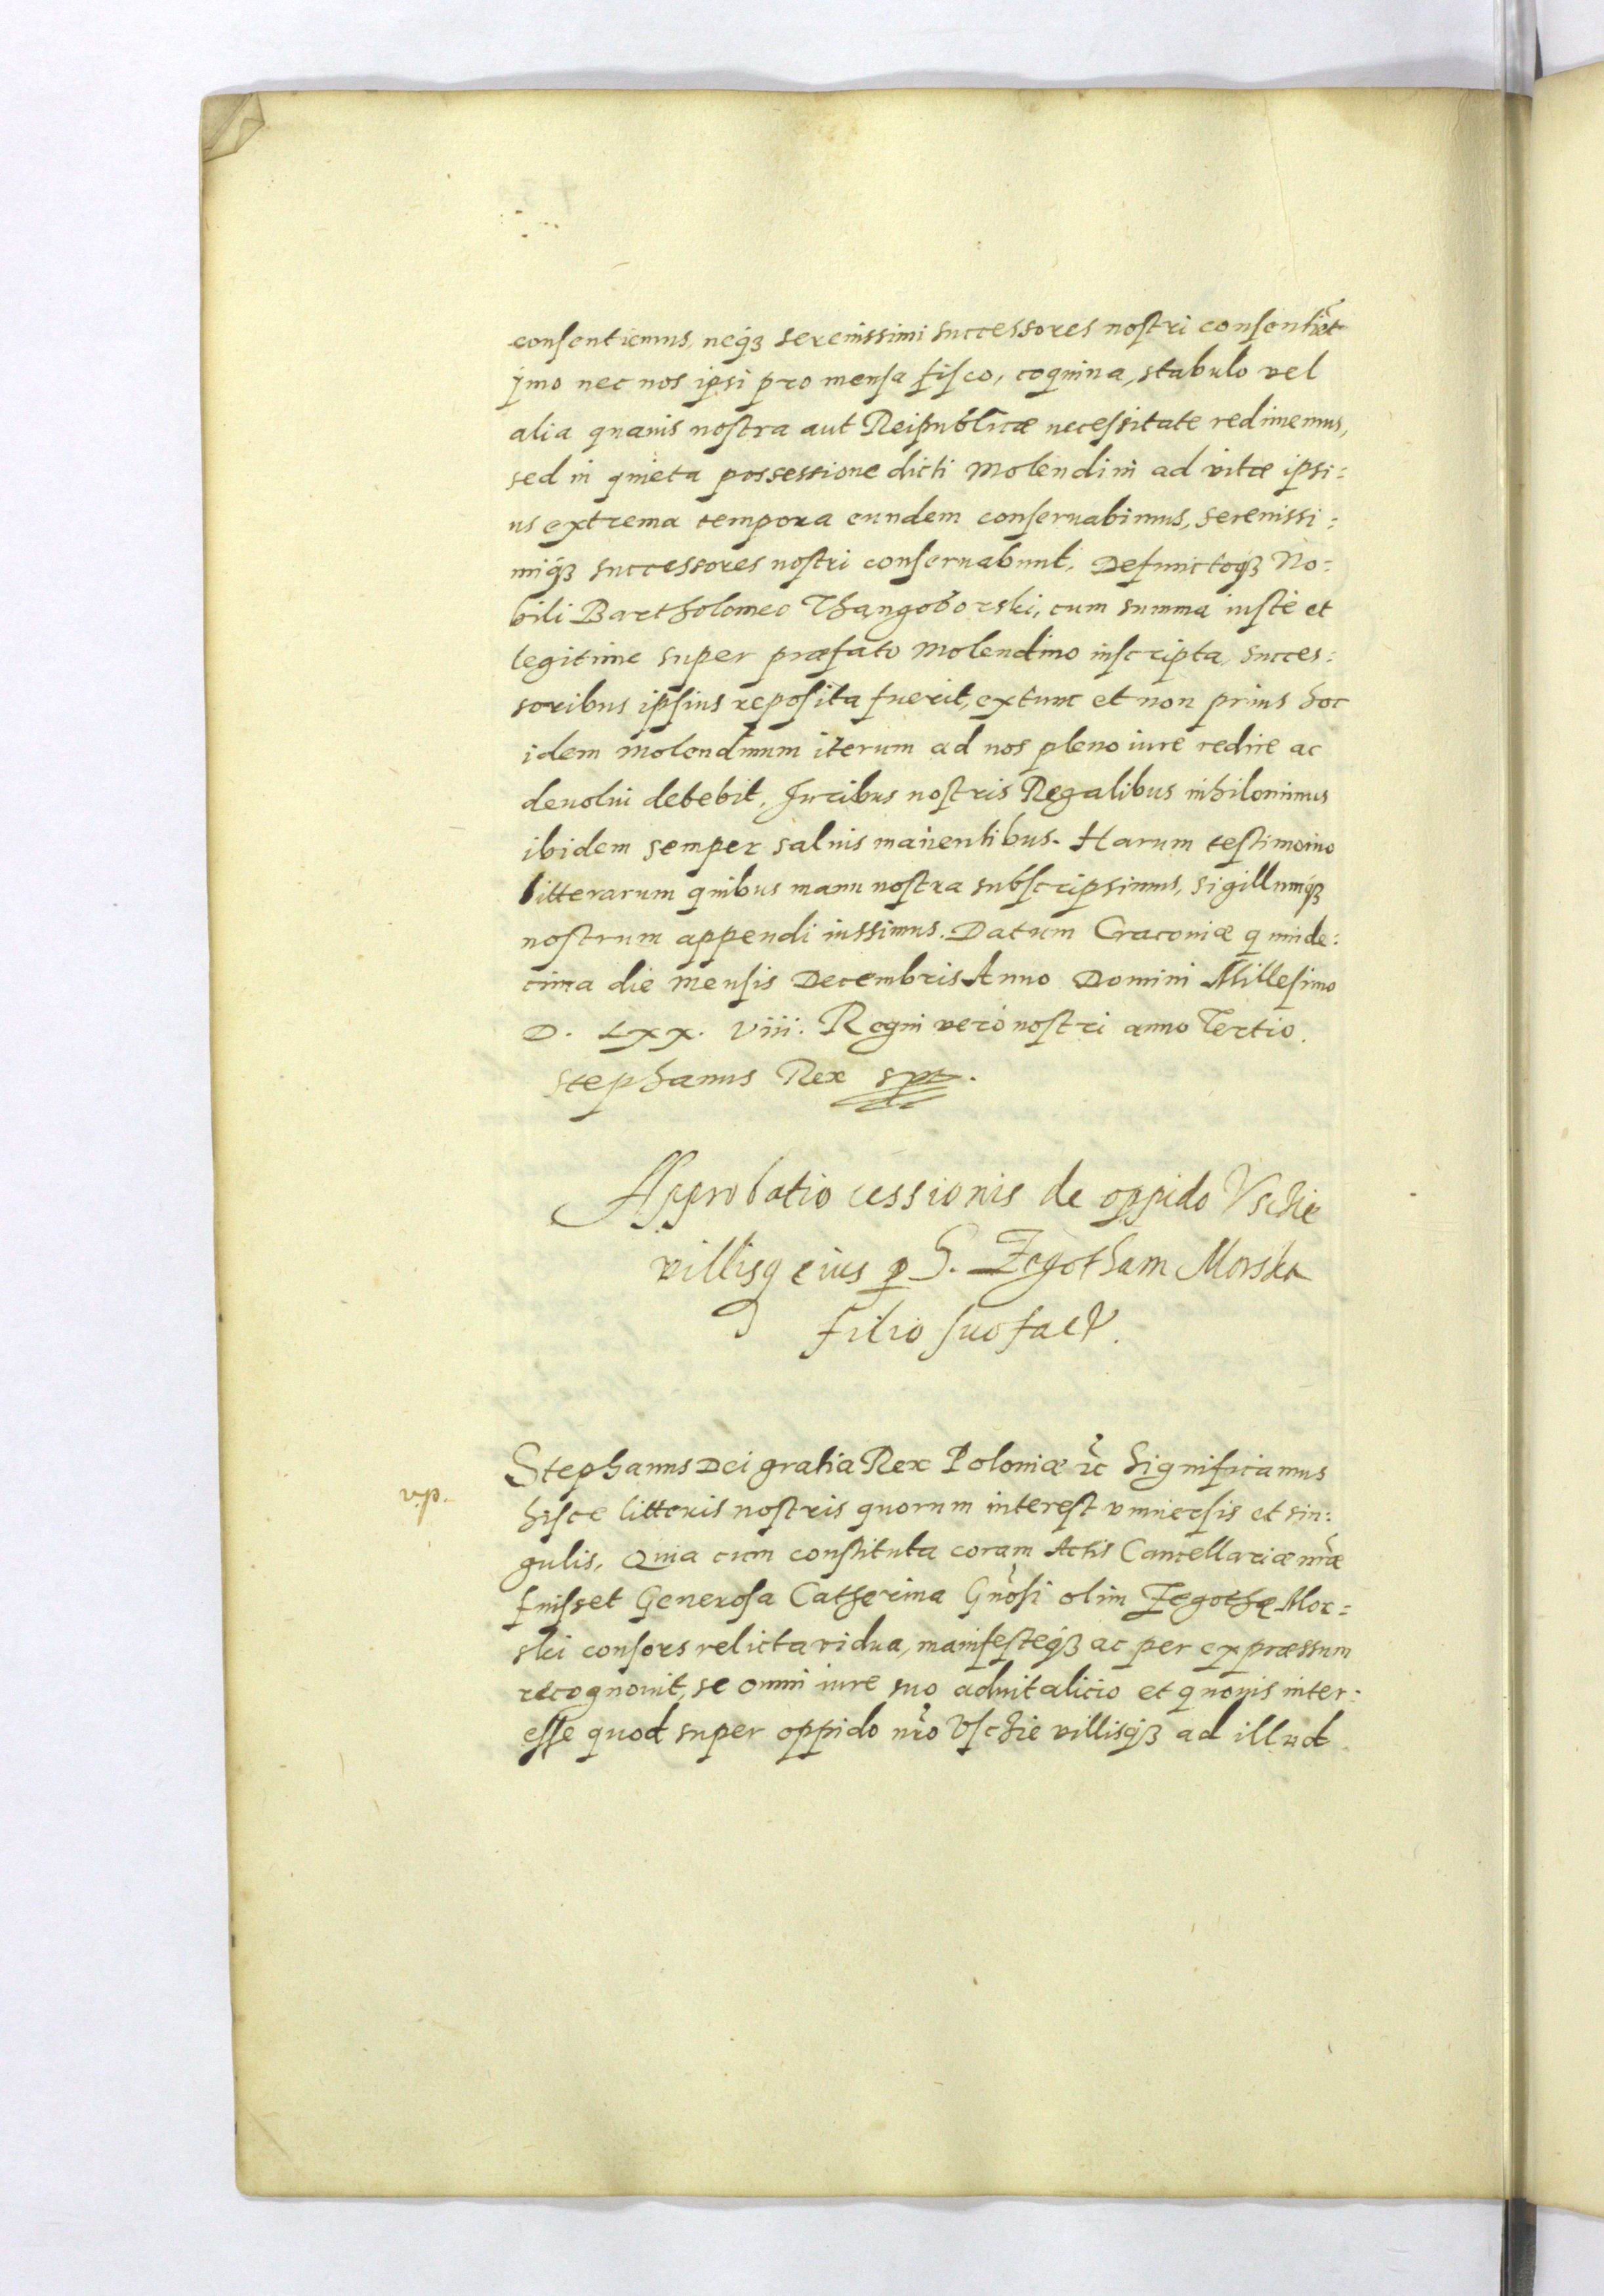 consentiemus, neq₃ serenissimi successores nostri consentiẽt
ymo nec nos ipsi pro mensa fisco, coquina, stabulo vel
alia quauis nostra aut Reipublicæ necessitate redimemus,
sed in quieta possessione dicti Molendini ad vitæ ipsi:
us extrema tempora eundem conseruabimus, serenissi:
miq₃ successores nostri conseruabunt. Defunctoq₃ No:
bili Bartholomeo Thangoborski, cum summa iustè et
legitime super præfato Molendino inscripta, succes:
soribus ipsius reposita fuerit, extunc et non prius hoc
idem molendinum iterum ad nos pleno iure redire ac
deuolui debebit, Juribus nostris Regalibus nihilominus
ibidem semper saluis manentibus. Harum testimonio
litterarum quibus manu nostra subscripsimus, sigillumq₃
nostrum appendi iussimus. Datum Cracouiæ quinde:
cima die mensis Decembris Anno Domini Millesimo
D. LXX. viii. Regni vero nostri anno Tertio.
Stephanus Rex sst.
Approbatio cessionis de oppido Vschie
villisq eius p G. Zegotham Morska
filio suo fact.
Stephanus Dei gratia Rex Poloniæ etc Significamus
hisce litteris nostris quorum interest vniuersis et sin:
gulis, Quia cum constituta coram Actis Cancellariæ nr̃æ
fuisset Generosa Catherina Gñosi olim Zegothæ Mor:
ski consors relicta vidua, manifesteq₃ ac per expræssum
recognouit, se omni iure suo aduitalicio et quouis inter:
esse quod super oppido nr̃o Vschie villisq₃ ad illud